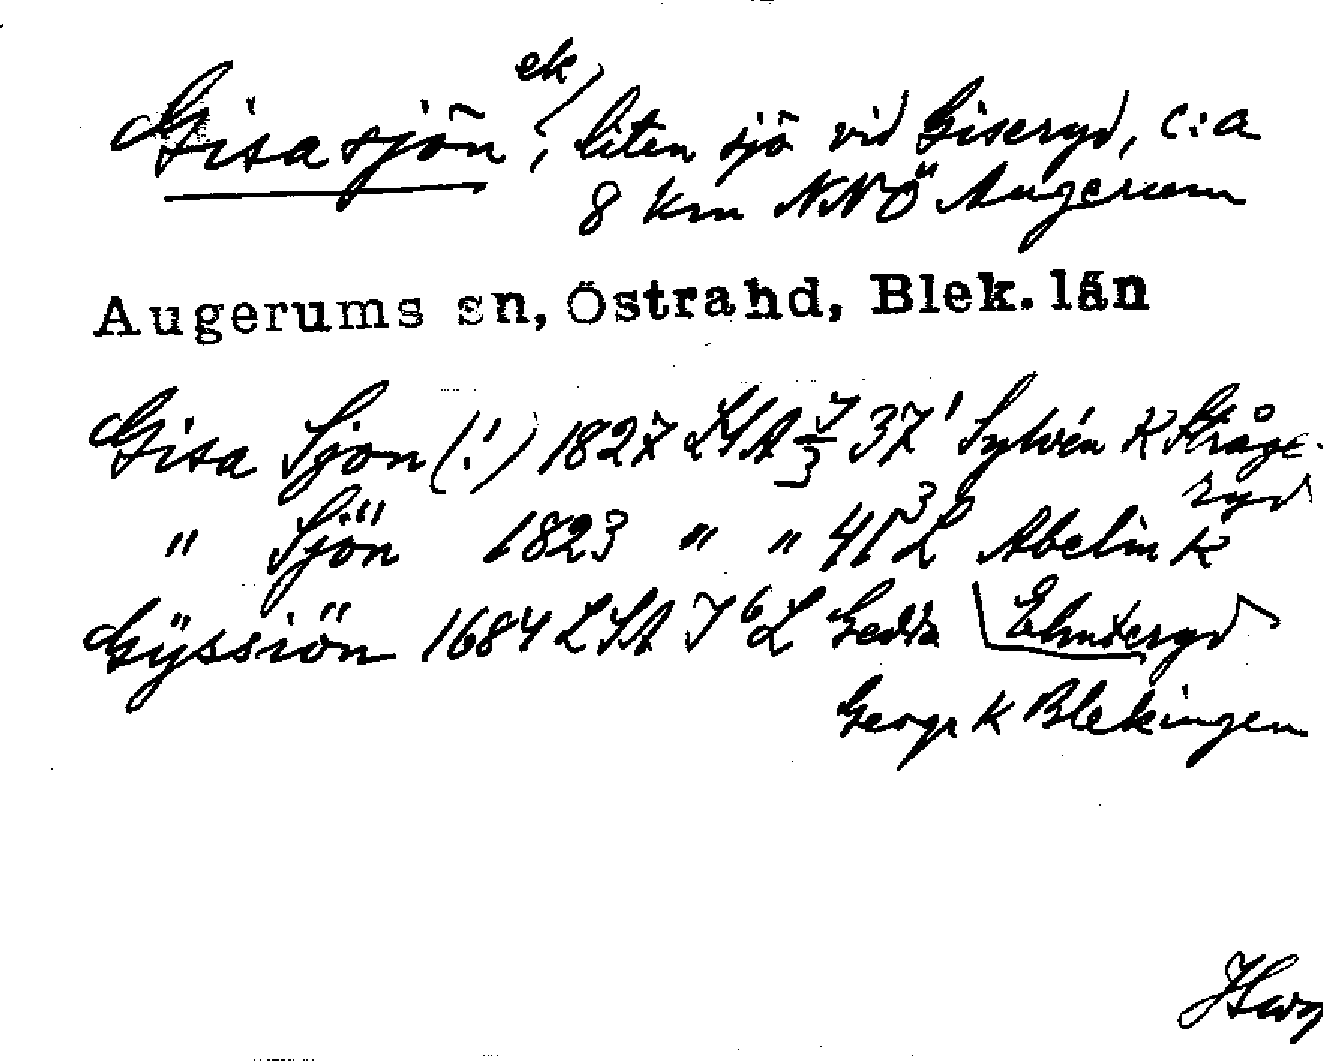 Gisasjön ek), liten sjö vid Giseryd, c:a
8 km NNÖ Augerum
Augerums sn, Östrahd, Blek. län
Gisa Sjon (!) 1827 LSA 37' Sylvén K Stråge-
ryd
" Sjön 1823 " " 41 Abelin K
Gÿssiön 1684 LSA J 6 L Gedda Elmteryd
Geogr K Blekingen